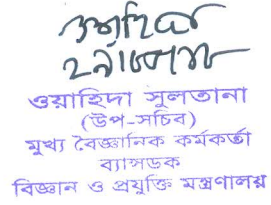 ওয়াহিদা সুলতানা
(উপ-সচিব)
মুখ্য বৈজ্ঞানিক কর্মকর্তা
ব্যান্সডক
বিজ্ঞান ও প্রযুক্তি মন্ত্রণালয়